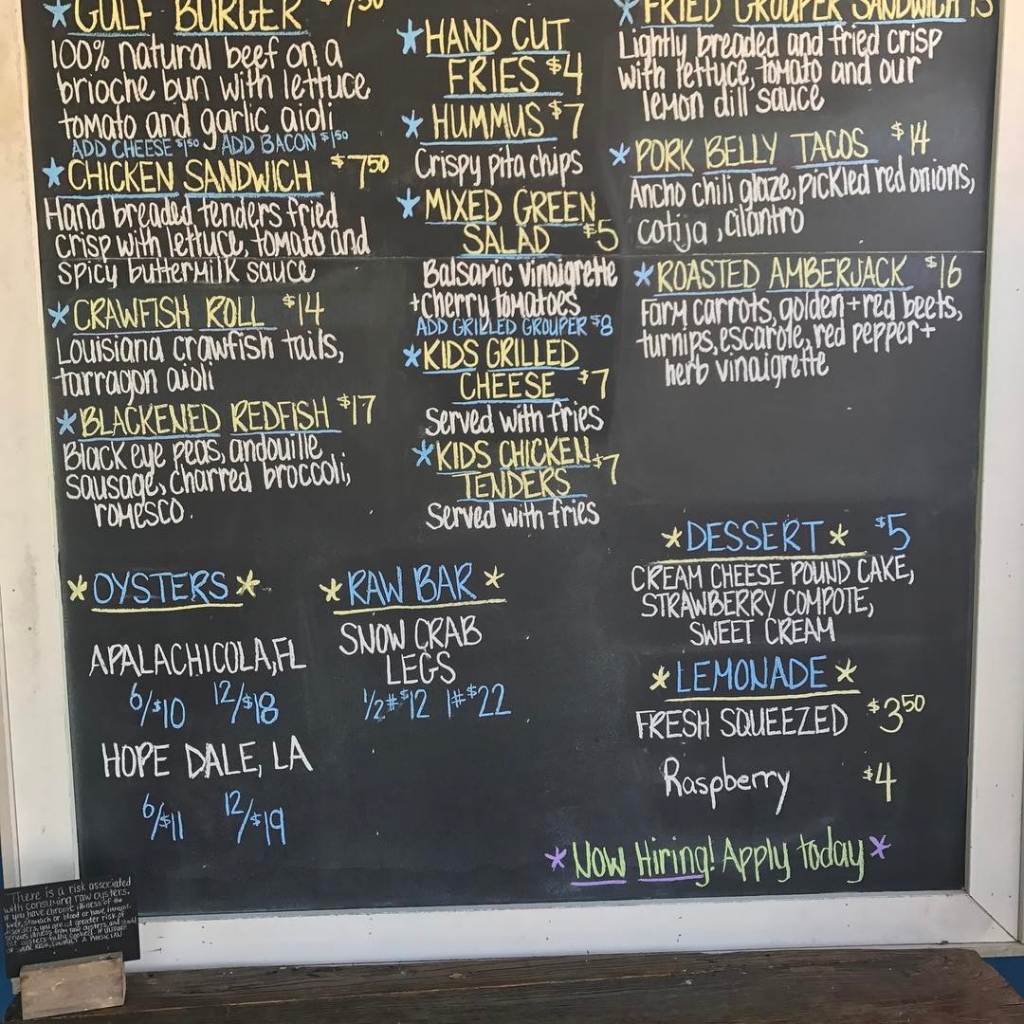 *GULF BURGER $7⁵⁰
100% natural beef on a
brioche bun with lettuce
tomato and garlic aioli
ADD CHEESE $1⁵⁰ ADD BACON $1⁵⁰
*CHICKEN SANDWICH $7⁵⁰
Hand breaded tenders fried
crisp with lettuce, tomato and
spicy buttermilk sauce
*CRAWFISH ROLL $14
Louisiana crawfish tails,
tarragon aioli
*BLACKENED REDFISH $17
Black eye peas, andouille
sausage, charred broccoli,
romesco.
*HAND CUT
FRIES $4
*HUMMUS $7
Crispy pita chips
*MIXED GREEN
SALAD $5
Balsamic vinaigrette
+cherry tomatoes
ADD GRILLED GROUPER $8
*KIDS GRILLED
CHEESE $7
Served with fries
*KIDS CHICKEN $7
TENDERS
Served with fries
*FRIED GROUPER SANDWICH 15
Lightly breaded and fried crisp
with lettuce, tomato and our
lemon dill sauce
*PORK BELLY TACOS $14
Ancho chili glaze, pickled red onions,
cotija, cilantro
*ROASTED AMBERJACK $16
Farm carrots, golden + red beets,
turnips, escarole, red pepper +
herb vinaigrette
*OYSTERS*
APALACHICOLA, FL
6/$10 12/$18
HOPE DALE, LA
6/$11 12/$19
*RAW BAR*
SNOW CRAB
LEGS
1/2# $12 1# $22
*DESSERT* $5
CREAM CHEESE POUND CAKE,
STRAWBERRY COMPOTE,
SWEET CREAM
*LEMONADE*
FRESH SQUEEZED $3⁵⁰
Raspberry $4
*Now Hiring! Apply today*
There is a risk associated
with consuming raw oysters.
If you have chronic illness of the